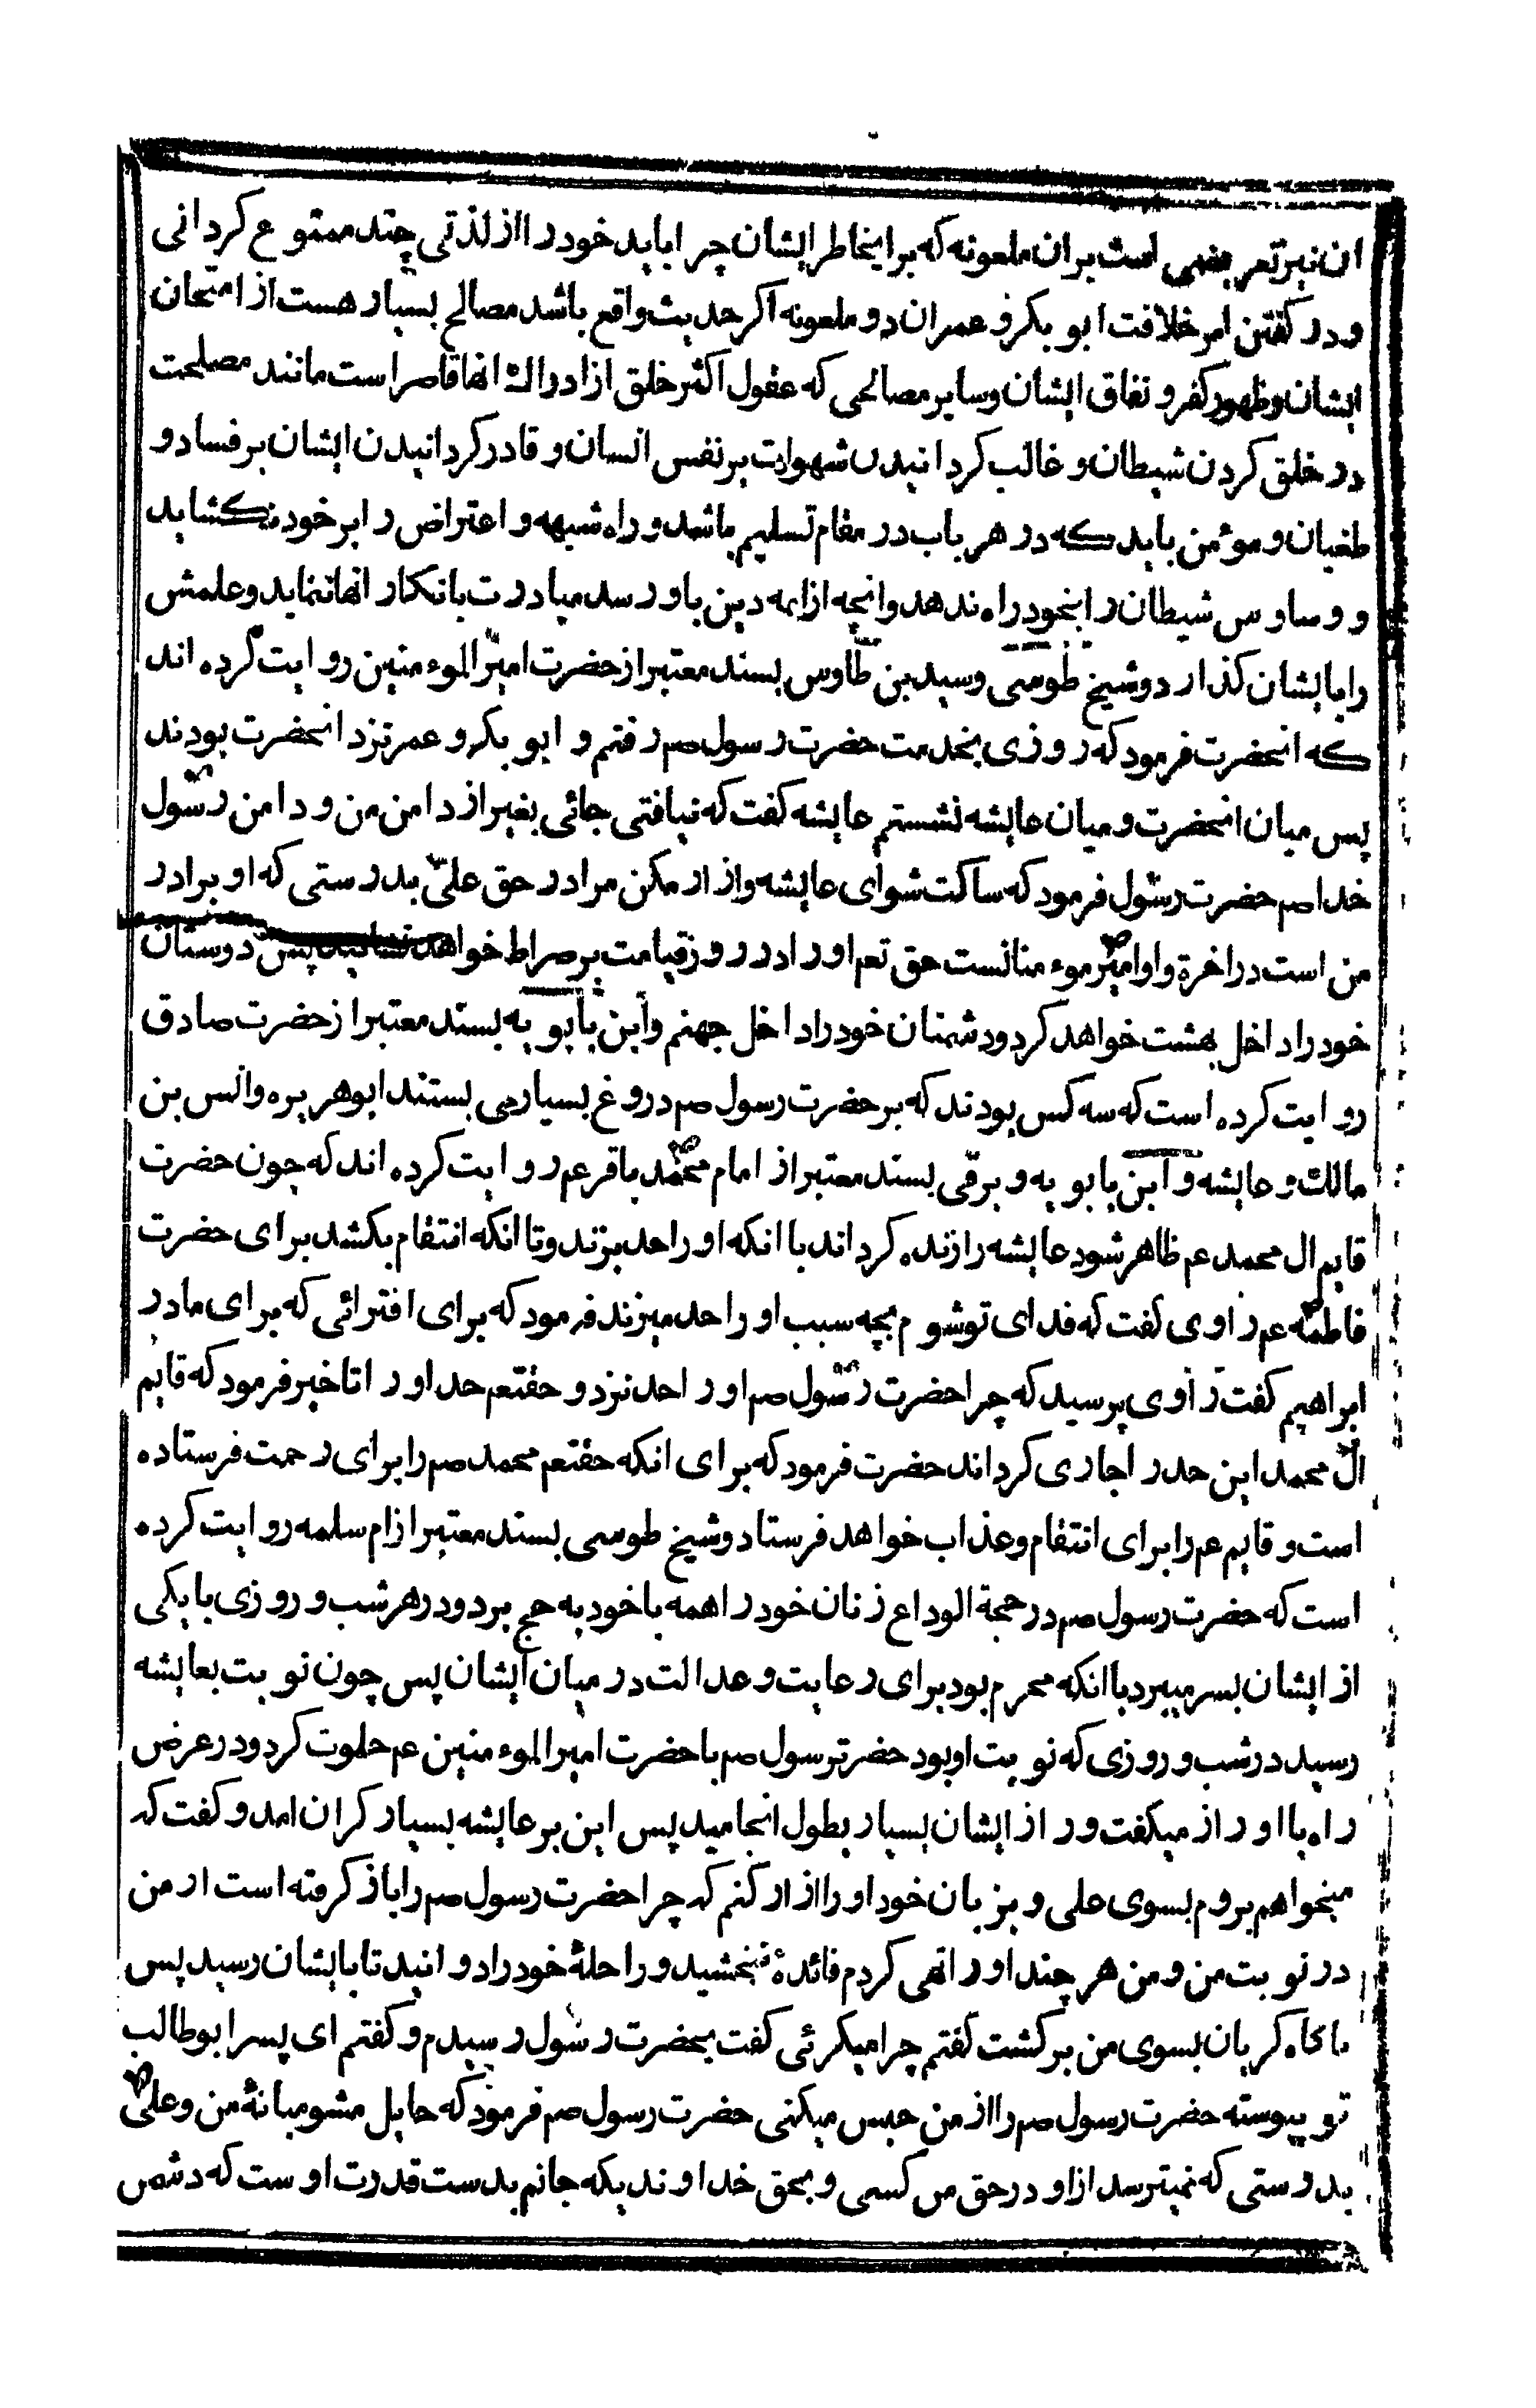 ان نیز تعریضی است بران ملعونه که برایخاطر ایشان چرا باید خود را از لذتی چند ممنوع گردانی
و در کفتن امر خلافت ابو بکر و عمر ان دو ملعونه اکر حدیث واقع باشد مصالح بسیار هست از امتحان
ایشان و ظهور کفر و نفاق ایشان و سایر مصالحی که عقول اکثر خلق از ادراك انها قاصر است مانند مصلحت
در خلق کردن شیطان و غالب کردانیدن شهوات بر نفس انسان و قادر کردانیدن ایشان بر فساد و
طغیان و موٴمن باید که در هر باب در مقام تسلیم باشد و راه شبهه و اعتراض را بر خود نکشاید
و وساوس شیطان را بخود راه ندهد و انچه از ایمه دین باو رسد مبادرت بانکار انها ننماید و علمش
را بایشان کذارد و شیخ طوسی و سید بن طاوس بسند معتبر از حضرت امیر الموء منین روایت کرده اند
که انحضرت فرمود که روزی بخدمت حضرت رسول صم رفتم و ابو بکر و عمر نزد انحضرت بودند
پس میان انحضرت و میان عایشه نشستم عایشه کفت که نیافتی جائی بغیر از دامن من و دامن رسول
خدا صم حضرت رسول فرمود که ساکت شو ای عایشه و ازار مکن مرا در حق علیّ بدرستی که او برادر
من است در اخرة و او امیر موء منانست حق تعم او را در روز قیامت بر صراط خواهد نشانید پس دوستان
خود را داخل بهشت خواهد کرد و دشمنان خود را داخل جهنم و ابن بابویه بسند معتبر از حضرت صادق
روایت کرده است که سه کس بودند که بر حضرت رسول صم دروغ بسیار می بستند ابو هریره و انس بن
مالك و عایشه و ابن بابویه و برقی بسند معتبر از امام محمّد باقر عم روایت کرده اند که چون حضرت
قایم ال محمد عم ظاهر شود عایشه را زنده کرداند با انکه او را حد بزند و تا انکه انتقام بکشد برای حضرت
فاطمه عم راوی کفت که فدای تو شوم بچه سبب او را حد میزند فرمود که برای افترائی که برای مادر
ابراهیم کفت راوی پرسید که چرا حضرت رسول صم او را حد نزد و حقتعم حد او را تا خیر فرمود که قایم
ال محمد این حد را جاری کرداند حضرت فرمود که برای انکه حقتعم محمد صم را برای رحمت فرستاده
است و قایم عم را برای انتقام و عذاب خواهد فرستاد و شیخ طوسی بسند معتبر از ام سلمه روایت کرده
است که حضرت رسول صم در حجة الوداع زنان خود را همه با خود به حج برد و در هر شب و روزی با یکی
از ایشان بسر میبرد با انکه محرم بود برای رعایت و عدالت در میان ایشان پس چون نوبت بعایشه
رسید در شب و روزی که نوبت او بود حضرت رسول صم با حضرت امیر الموء منین عم خلوت کرد و در عرض
راه با او راز میکفت و راز ایشان بسیار بطول انجامید پس این بر عایشه بسیار کران امد و کفت که
میخواهم بروم بسوی علی و بزبان خود او را ازار کنم که چرا حضرت رسول صم را باز کرفته است از من
در نوبت من و من هر چند او را نهی کردم فائدهٔ نبخشید و راحلهٔ خود را دوانید تا بایشان رسید پس
ناکاه کریان بسوی من برکشت کفتم چرا میکرئی کفت بحضرت رسول رسیدم و کفتم ای پسر ابو طالب
تو پیوسته حضرت رسول صم را از من حبس میکنی حضرت رسول صم فرمود که حایل مشو میانهٔ من و علی
بدرستی که نمیترسد از او در حق من کسی و بحق خداوندیکه جانم بدست قدرت اوست که دشمن